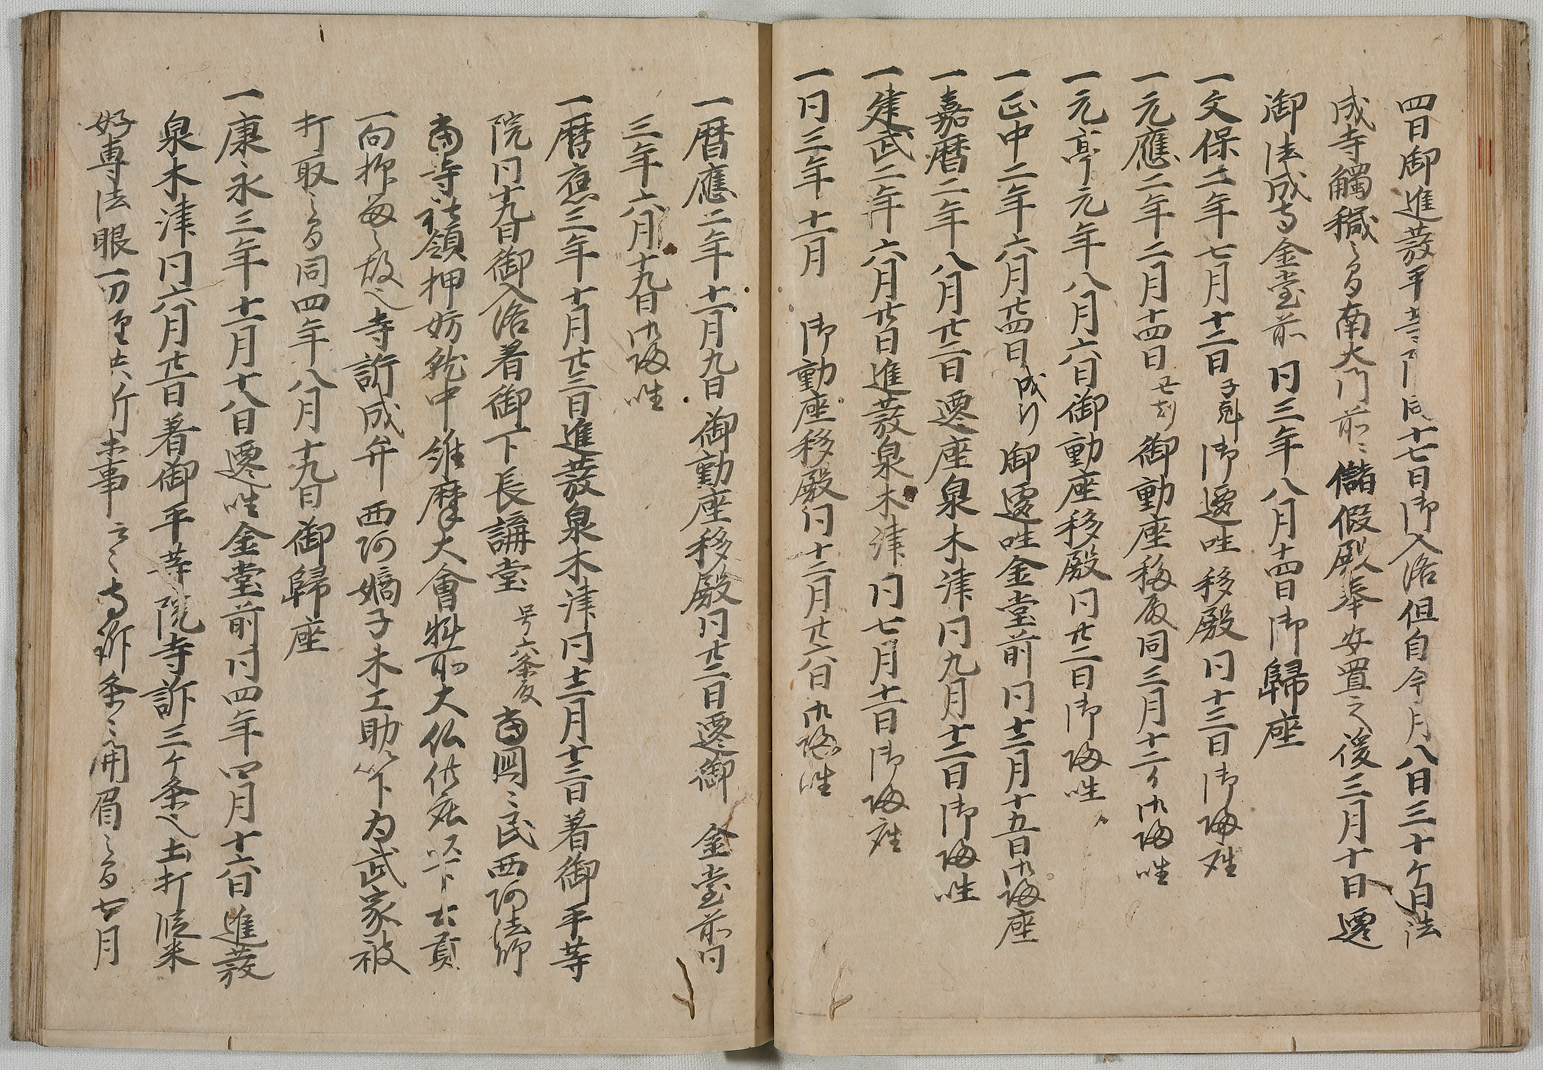 四日御進發平等院同十七日御入洛但自今月八日三十ケ日法
成寺觸穢之間南大門前ニ儲假殿奉安置之後三月十日遷
御法成寺金堂前 同三年八月十四日御歸座
一文保二年七月十二日子剋御遷座移殿同十三日御歸座
一元應二年二月十四日御動座移殿同三月十二日御歸座
一元亨元年八月六日御動座移殿同廿二日御歸座
一正中二年六月廿四日戌刻御遷座金堂前同十二月十五日御歸座
一嘉暦二年八月廿二日遷座泉木津同九月十二日御歸座
一建武二年六月廿日進發泉木津同七月十二日御歸座
一同三年十二月 御動座移殿同十二月廿六日御歸座
一暦應二年十二月九日御動座移殿同廿二日遷御 金堂前同
三年六月十九日御歸座
一暦應三年十月廿三日進發泉木津同十二月十三日著御平等
院同十九日御入洛著御下長講堂 六条 南國之民西阿法師
南寺社領押妨就中維摩大會料所大仏供庄以下土貢
一向抑留之故也寺訴成弁 西阿嫡子木工助 以下為武家被
打取之間同四年八月十九日御歸座
一康永三年十一月十八日遷座金堂前同四年四月十六日進發
泉木津同六月廿日著御平等院寺訴三ケ条也土打段米
好専法眼 事云々寺訴条々開眉之間七月